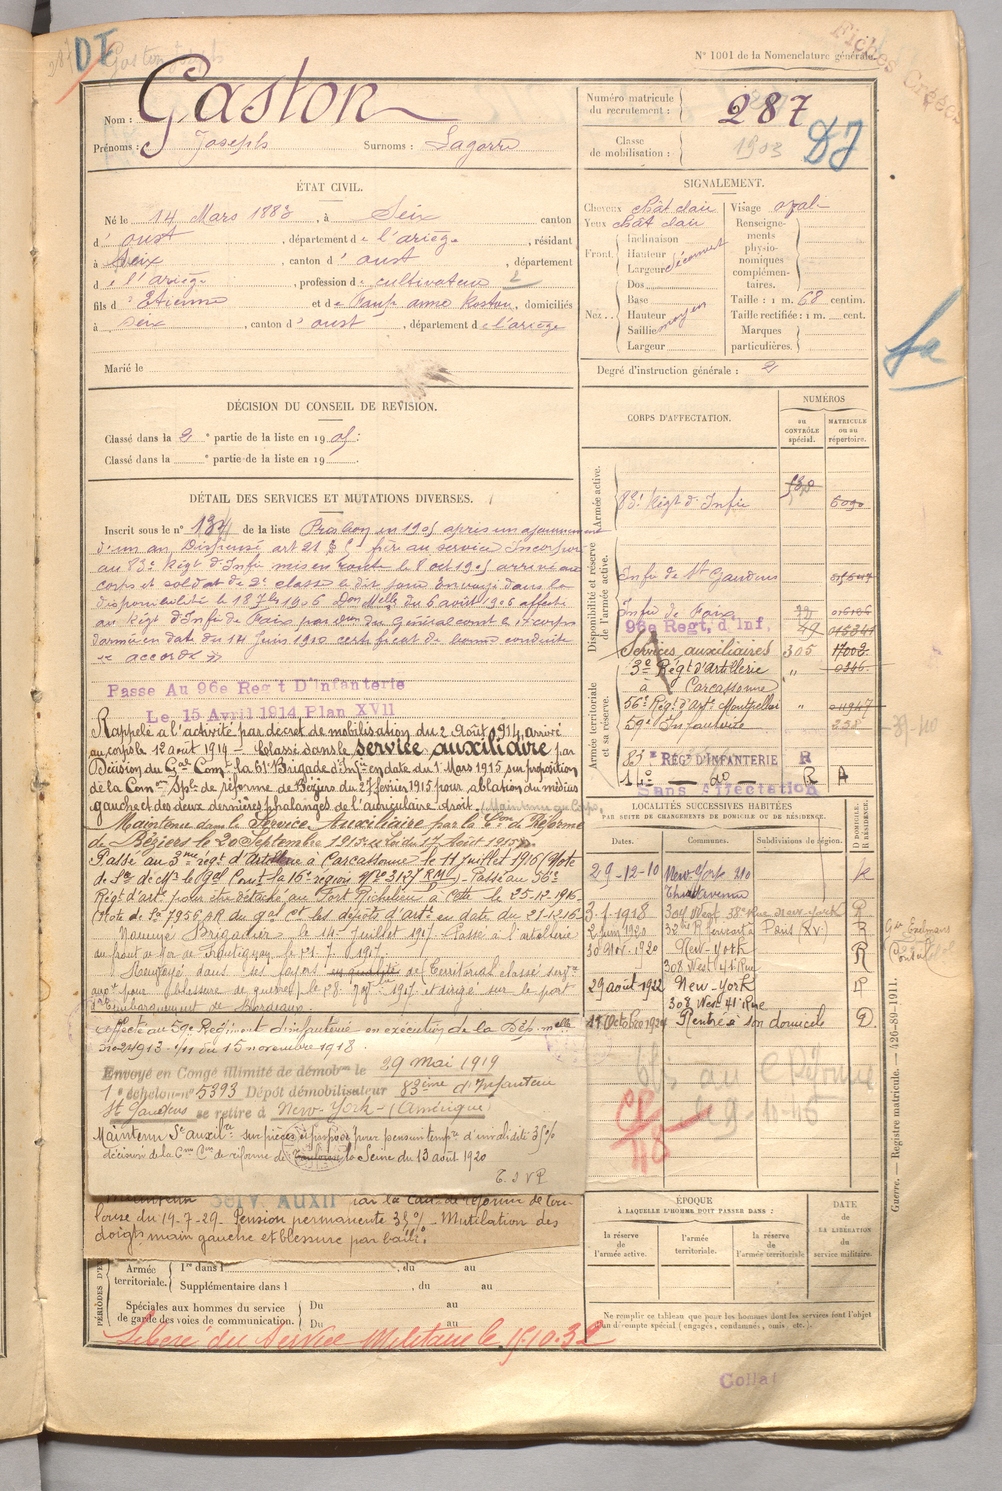 N° 1001 de la Nomenclature générale.
DI
Nom : Gaston
Prénoms : Joseph Surnoms : Lagorre
Numéro matricule du recrutement : 287
Classe de mobilisation : 1903
ÉTAT CIVIL.
Né le 14 Mars 1883, à Seix canton
d' oust, département de l'ariège, résidant
à Seix, canton d' oust, département
d e l'ariège, profession de cultivateur
fils d' Etienne et de anne, domiciliés
à Seix, canton d' oust, département de l'ariège
Marié le
SIGNALEMENT.
Cheveux chât clair Visage oval
Yeux chât clair
Front. Inclinaison
Hauteur
Largeur découvert
Nez. Dos
Base
Hauteur
Saillie moyen
Largeur
Renseignements physionomiques complémentaires.
Taille : 1 m. 68 centim.
Taille rectifiée : 1 m. cent.
Marques particulières.
Degré d'instruction générale : 2
DÉCISION DU CONSEIL DE REVISION.
Classé dans la 2e partie de la liste en 1905.
Classé dans la partie de la liste en 19
DÉTAIL DES SERVICES ET MUTATIONS DIVERSES.
Inscrit sous le n° de la liste en 1905 après un ajournement
d'un an Dispensé art 21 frère au service Incorporé
au 83e Régt d'Infie mis en route le 8 oct 1905 arrivé au
corps et soldat de 2e classe le dit jour Envoyé dans la
disponibilité le 18 7bre 1906 Don Melle du 6 août 1906 affecté
au Régt d'Infie de Foix par don du Général comt le corps
d'armée en date du 14 Juin 1910 certificat de bonne conduite
"accordé"
Passé Au 96e Regt D'Infanterie
Le 15 Avril 1914 Plan XVII
Rappelé à l'activité par décret de mobilisation du 2 Août 1914, arrivé
au corps le 12 août 1914 – Classé dans le service auxiliaire par
Décision du Gal Comt la 61e Brigade d'Infie en date du 1er Mars 1915 sur proposition
de la Comon Sple de réforme de Béziers du 27 février 1915 pour ablation du médius
gauche et des deux dernières phalanges de l'auriculaire droit. Maintenu au Corps,
Maintenu dans le Service Auxiliaire par la Con de Réforme
de Béziers le 20 Septembre 1915
Passé au 3me régt d'Artillerie à Carcassonne le 11 juillet 1916 (Note
de Sce de Mr le Gal Comt la 16e région N° 3127 RM). Passé au 56e
Régt d'art pour être détaché au Fort Richelieu à Cette le 25-12-1916
(Note de Sce 7956 AR du gal Ct les dépôts d'artie en date du 21-12-16
Nommé Brigadier le 14 juillet 1917. Passé à l'artillerie
Renvoyé dans ses foyers en qualité de territorial classé servce
auxre pour blessure de guerre, le 28 1917 et dirigé sur le port
d'Embarquement de Bordeaux.
affecté au 59e Régiment d'infanterie en exécution de la Dép. melle
no 24913-1/11 du 15 novembre 1918.
Envoyé en Congé illimité de démobon le 29 mai 1919
1e échelon no 5393 Dépôt démobilisateur 83ème d'Infanterie
St Gaudens se retire à New-York – (Amérique)
Maintenu Sce auxilre sur pièces et proposé pour pension tempre d'invalidité 35%
décision de la Con de réforme de la Seine du 13 août 1920
Maintenu SERV. AUXII par la Con de réforme de Tou-
louse du 19-7-29. Pension permanente 35% – Mutilation des
doigts main gauche et blessure par balle.
PÉRIODES D'EX
Armée territoriale. 1re dans l , du au
Supplémentaire dans l , du au
Spéciales aux hommes du service de garde des voies de communication. Du au
Du au
Libéré du Service Militaire le 15-10-32
CORPS D'AFFECTATION.
NUMÉROS
au CONTRÔLE spécial.
MATRICULE ou au répertoire.
Armée active.
83e Régt d'Infie
Disponibilité et réserve de l'armée active.
Infie de St Gaudens
Infie de Foix
96e Regt, d'Inf,
Services auxiliaires 305
Armée territoriale et sa réserve.
3e Régt d'Artillerie
à Carcassonne
56e Régt d'Arte Montpellier
59e Infanterie
83e RÉGT D'INFANTERIE R
14e – do – R A
Sans Affectation
LOCALITÉS SUCCESSIVES HABITÉES
PAR SUITE DE CHANGEMENTS DE DOMICILE OU DE RÉSIDENCE.
Dates. Communes. Subdivisions de région. D. DOMICILE. R. RÉSIDENCE.
29-12-10 New-York 210 R
3-1-1918 304 West 38e Rue New-York R
2 juin 1920 Paris (XV) R
30 Nov. 1920 New-York R
308 West 41e Rue
29 août 1922 New-York R
308 West 41e Rue
Rentré à son domicile D.
ÉPOQUE
À LAQUELLE L'HOMME DOIT PASSER DANS :
la réserve de l'armée active.
l'armée territoriale.
la réserve de l'armée territoriale
DATE de LA LIBÉRATION du service militaire.
Ne remplir ce tableau que pour les hommes dont les services font l'objet
d'un décompte spécial (engagés, condamnés, omis, etc.).
Guerre. — Registre matricule. — 426-89-1911.